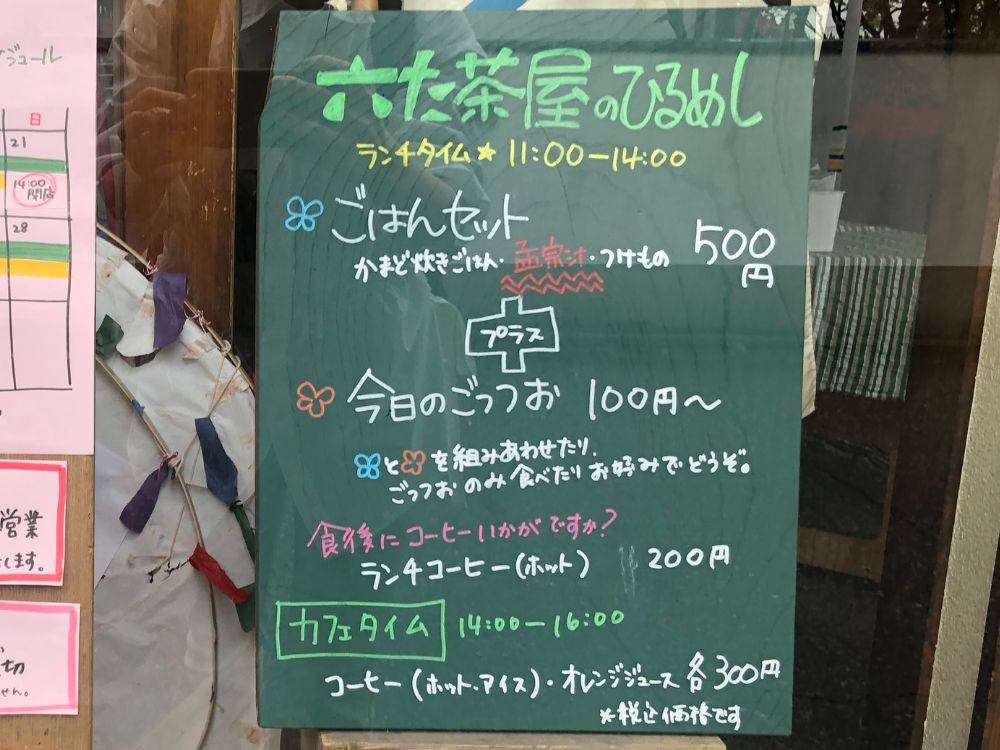 六た茶屋のひるめし
ランチタイム★11:00-14:00
ごはんセット
かまど炊きごはん・孟宗汁・つけもの
500円
プラス
今日のごっつお 100円〜
と を組みあわせたり、
ごっつおのみ食べたりお好みでどうぞ。
食後にコーヒーいかがですか?
ランチコーヒー(ホット) 200円
カフェタイム 14:00-16:00
コーヒー(ホット・アイス)・オレンジジュース 各300円
*税込価格です
ジュール
日
21
14:00
閉店
28
営業
します。
切
せん。